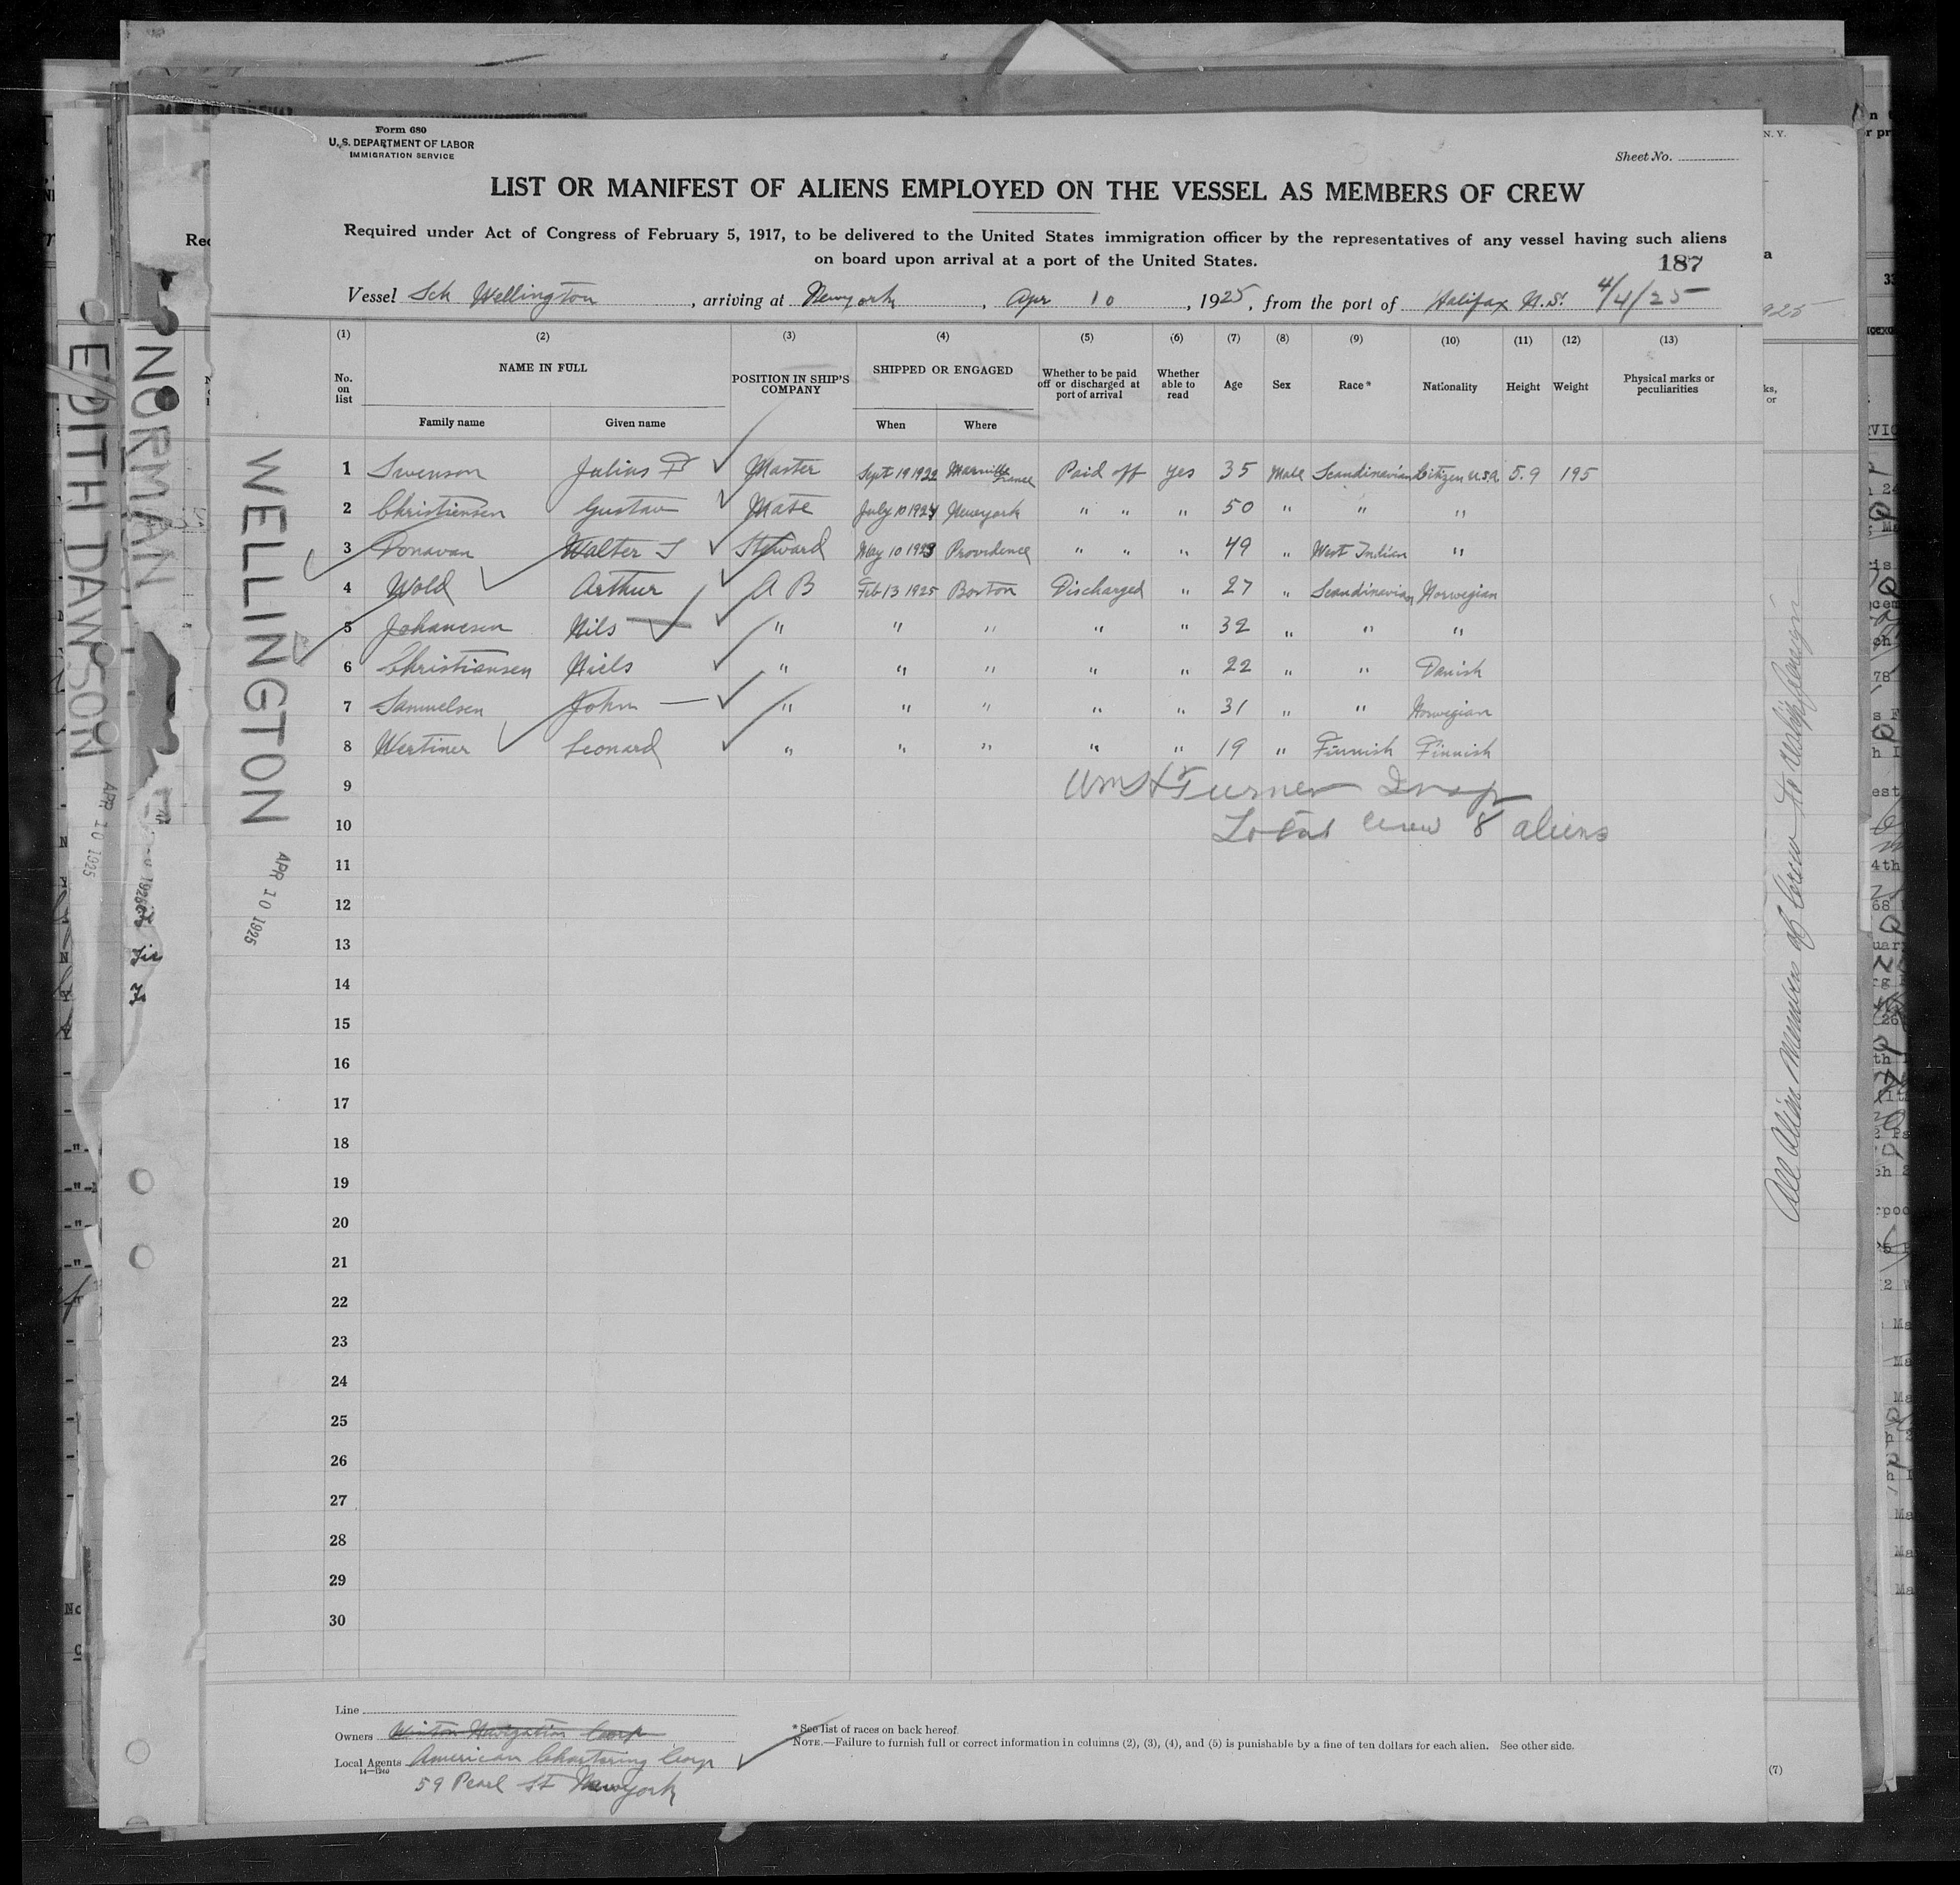 Form 680
U. S. DEPARTMENT OF LABOR
IMMIGRATION SERVICE
Sheet No.
LIST OR MANIFEST OF ALIENS EMPLOYED ON THE VESSEL AS MEMBERS OF CREW
Required under Act of Congress of February 5, 1917, to be delivered to the United States immigration officer by the representatives of any vessel having such aliens
on board upon arrival at a port of the United States.
187
Vessel Sch Wellington, arriving at Newyork, Apr 10, 1925, from the port of Halifax N.S. 4/4/25
(1) (2) (3) (4) (5) (6) (7) (8) (9) (10) (11) (12) (13)
No. on list NAME IN FULL Family name Given name POSITION IN SHIP'S COMPANY SHIPPED OR ENGAGED When Where Whether to be paid off or discharged at port of arrival Whether able to read Age Sex Race* Nationality Height Weight Physical marks or peculiarities
1 Swenson Julius Master Sept 19 1922 France Paid off yes 35 Male Scandinavian Citizen U.S.A 5.9 195
2 Christiensen Gustav Mate July 10 1924 Newyork " " " 50 " " "
3 Donavan Walter Steward May 10 1923 Providence " " " 49 " West Indian "
4 Wold Arthur A B Feb 13 1925 Boston Discharged " 27 " Scandinavian Norwegian
5 Johancsen Nils " " " " " 32 " " "
6 Christiansen Niels " " " " " 22 " " Danish
7 Samuelsen John " " " " " 31 " " Norwegian
8 Wertiner Leonard " " " " " 19 " Finnish Finnish
9 Wm H Turner Insp
10 Total Crew 8 aliens
11
12
13
14
15
16
17
18
19
20
21
22
23
24
25
26
27
28
29
30
Line
Owners Winton Navigation Corp
Local Agents American Chartering Corp
14—1240
59 Pearl St Newyork
* See list of races on back hereof.
NOTE.—Failure to furnish full or correct information in columns (2), (3), (4), and (5) is punishable by a fine of ten dollars for each alien. See other side.
WELLINGTON
APR 10 1925
NORMAN
EDITH DAWSON
APR 10 1925
All Alien Members of Crew to
(7)
N. Y.